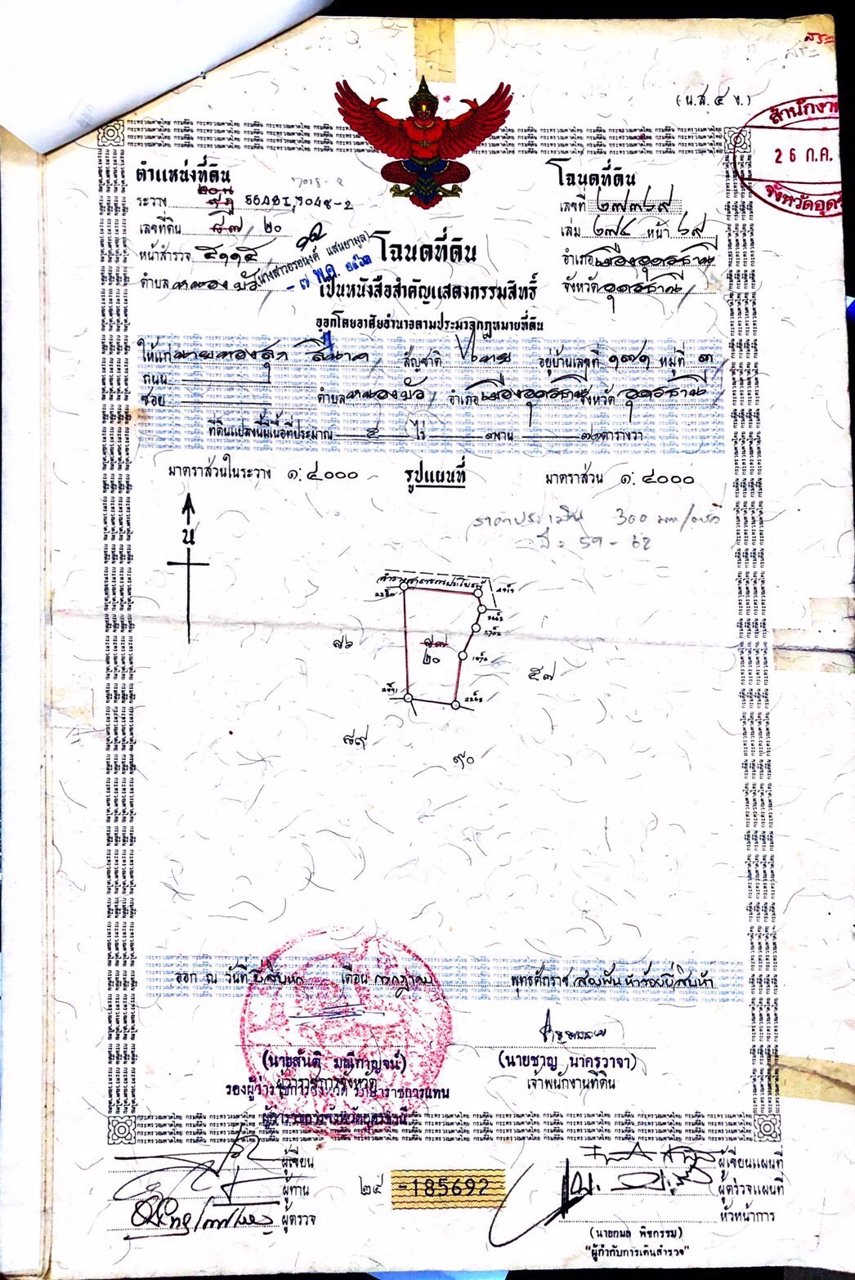 (น.ส. ๔ จ.)
สำนักงาน
26 ก.ค.
จังหวัดอุดร
ตำแหน่งที่ดิน
โฉนดที่ดิน
ระวาง 5642I, 7048-2
เลขที่ ๒๗๓๖๙
เลขที่ดิน ๕๗/๒๐
เล่ม ๒๗๔ หน้า ๖๙
หน้าสำรวจ ๕๑๑๕
อำเภอเมืองอุดรธานี
ตำบลหนองบัว
จังหวัดอุดรธานี
โฉนดที่ดิน
เป็นหนังสือสำคัญแสดงกรรมสิทธิ์
ออกโดยอาศัยอำนาจตามประมวลกฎหมายที่ดิน
ให้แก่ นายทองสุก สัญชาติ ไทย อยู่บ้านเลขที่ ๑๗๑ หมู่ที่ ๓
ถนน
ซอย ตำบลหนองบัว อำเภอเมืองอุดรธานี จังหวัด อุดรธานี
ที่ดินแปลงนี้มีเนื้อที่ประมาณ ๕ ไร่ ๓ งาน ตารางวา
มาตราส่วนในระวาง ๑:๔๐๐๐ รูปแผนที่ มาตราส่วน ๑:๔๐๐๐
ราคาประเมิน 300
ปี 59 - 62
น
ลำรางสาธารณประโยชน์
๕๗
๒๐
๕๗
๘๙
๙๐
ออก ณ วันที่ ยี่สิบหก เดือน กรกฎาคม พุทธศักราช สองพันห้าร้อยยี่สิบห้า
(นายสันติ มณีกาญจน์)
(นายชาญ นาครวาจา)
ผู้ว่าราชการจังหวัด
เจ้าพนักงานที่ดิน
รองผู้ว่าราชการจังหวัด รักษาราชการแทน
ผู้ว่าราชการจังหวัดอุดรธานี
ผู้เขียน
ผู้เขียนแผนที่
ผู้ทาน
ผู้ตรวจแผนที่
ผู้ตรวจ
หัวหน้าการ
๒๕ -185692
(นายกมล พิชกรรม)
"ผู้กำกับการเดินสำรวจ"